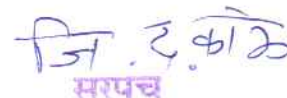 जि. द. काळे
सरपंच